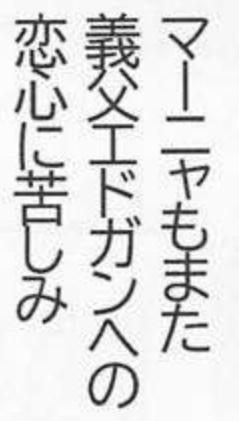 マーニャもまた
義父エドガンへの
恋心に苦しみ